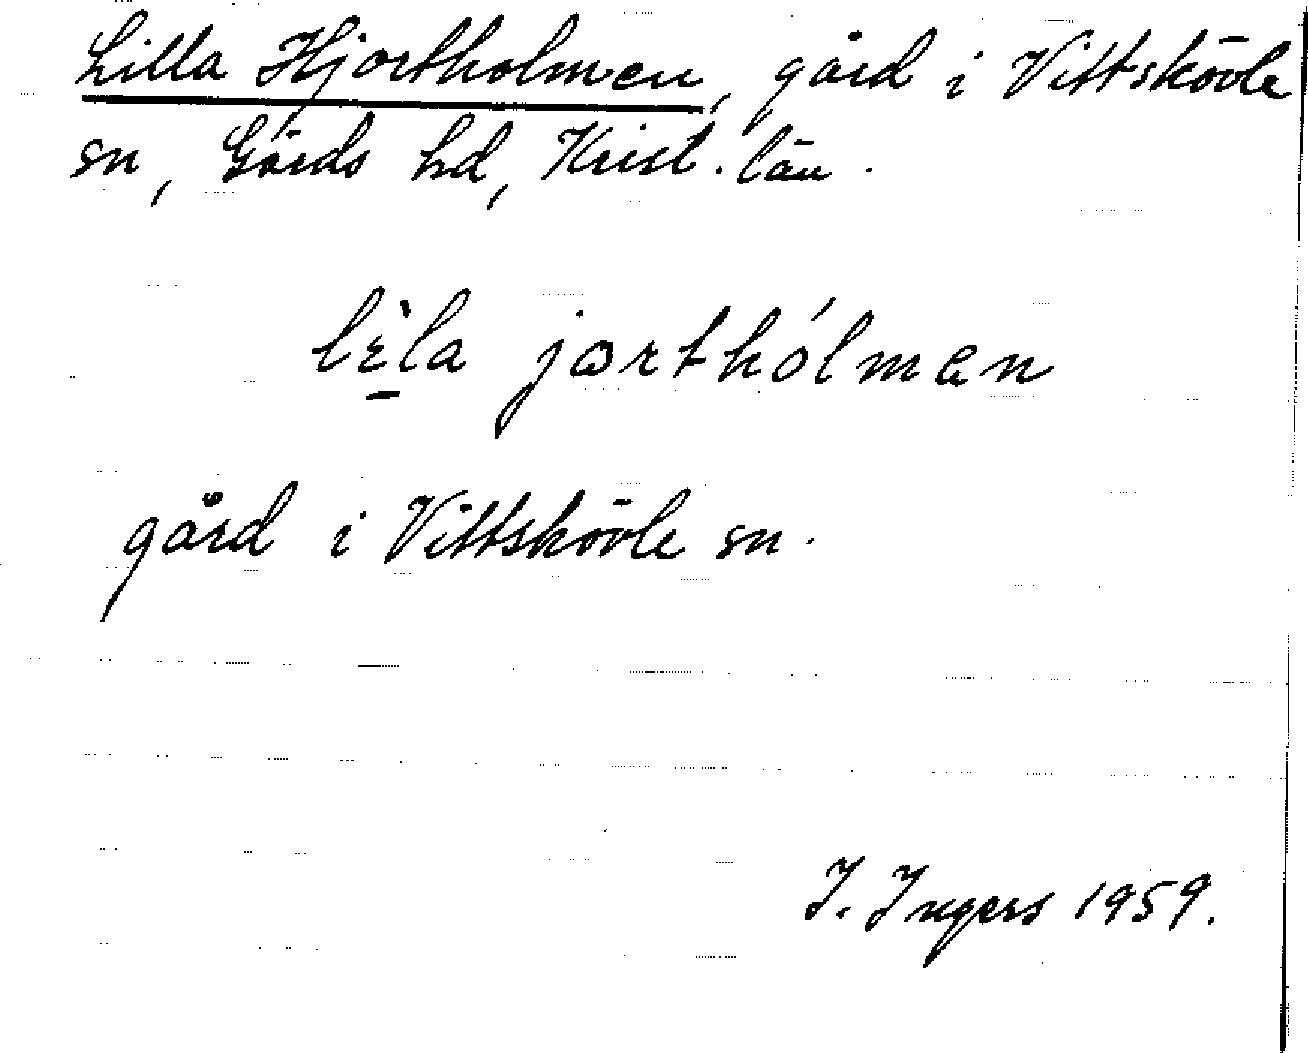 Lilla Hjortholmen, gård i Vittskövle
sn, Gärds hd, Krist. län.
lìla jorthólmen
gård i Vittskövle sn.
I. Ingers 1959.